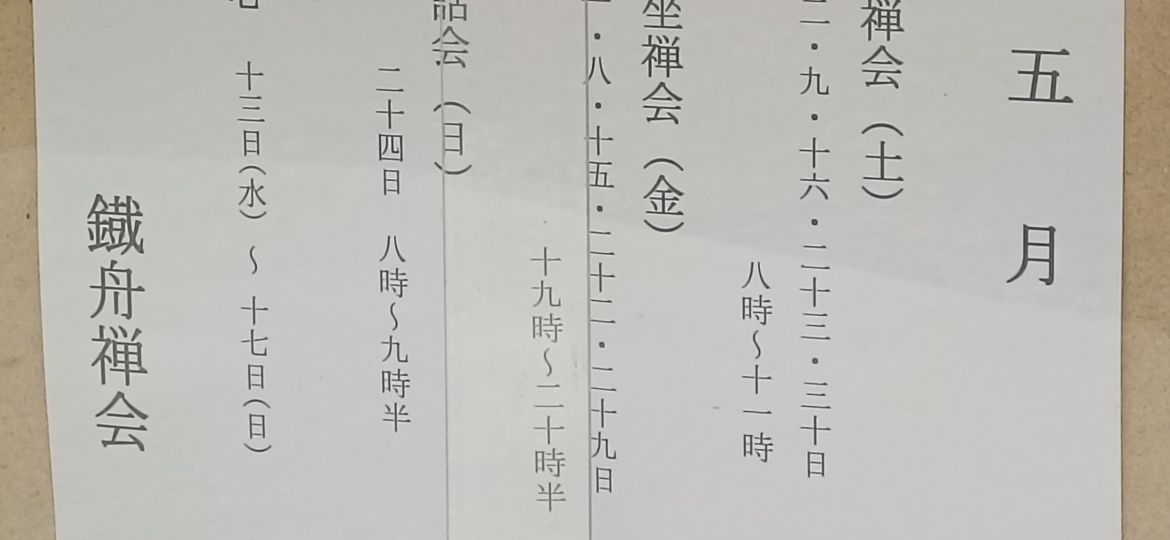 五月
禅会（土）
二・九・十六・二十三・三十日
八時〜十一時
坐禅会（金）
一・八・十五・二十二・二十九日
十九時〜二十時半
話会（日）
二十四日 八時〜九時半
十三日（水）〜十七日（日）
鐵舟禅会